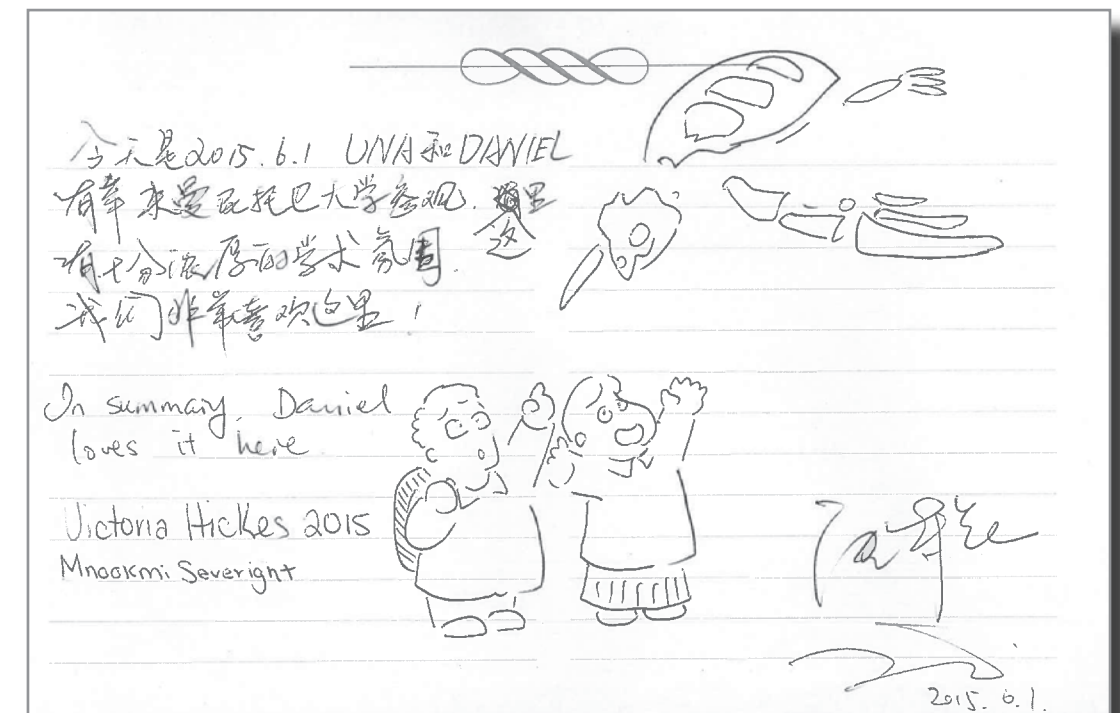 今天是2015.6.1 UNA和DANIEL
有幸来曼尼托巴大学参观.这里
有十分浓厚的学术氛围.
我们非常喜欢这里!
In summary, Daniel
loves it here
Victoria Hickes 2015
Mnookmi Severight
2015.6.1.